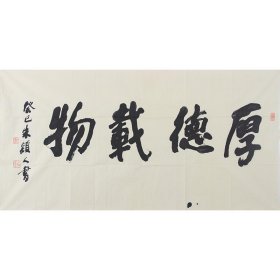 厚德載物
癸巳朱鎮人書